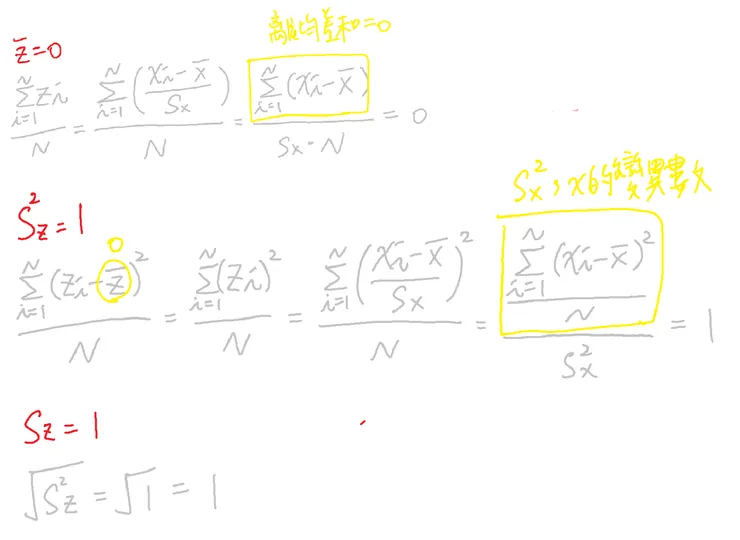 離均差和=0
z̄=0
\frac{\sum_{i=1}^{N} z_i}{N} = \frac{\sum_{i=1}^{N} \left(\frac{x_i - \bar{x}}{S_x}\right)}{N} = \frac{\sum_{i=1}^{N} (x_i - \bar{x})}{S_x \cdot N} = 0
S_x^2, x的變異數
S_z^2=1
0
\frac{\sum_{i=1}^{N} (z_i - \bar{z})^2}{N} = \frac{\sum_{i=1}^{N} (z_i)^2}{N} = \frac{\sum_{i=1}^{N} \left(\frac{x_i - \bar{x}}{S_x}\right)^2}{N} = \frac{\frac{\sum_{i=1}^{N} (x_i - \bar{x})^2}{N}}{S_x^2} = 1
S_z=1
\sqrt{S_z^2} = \sqrt{1} = 1